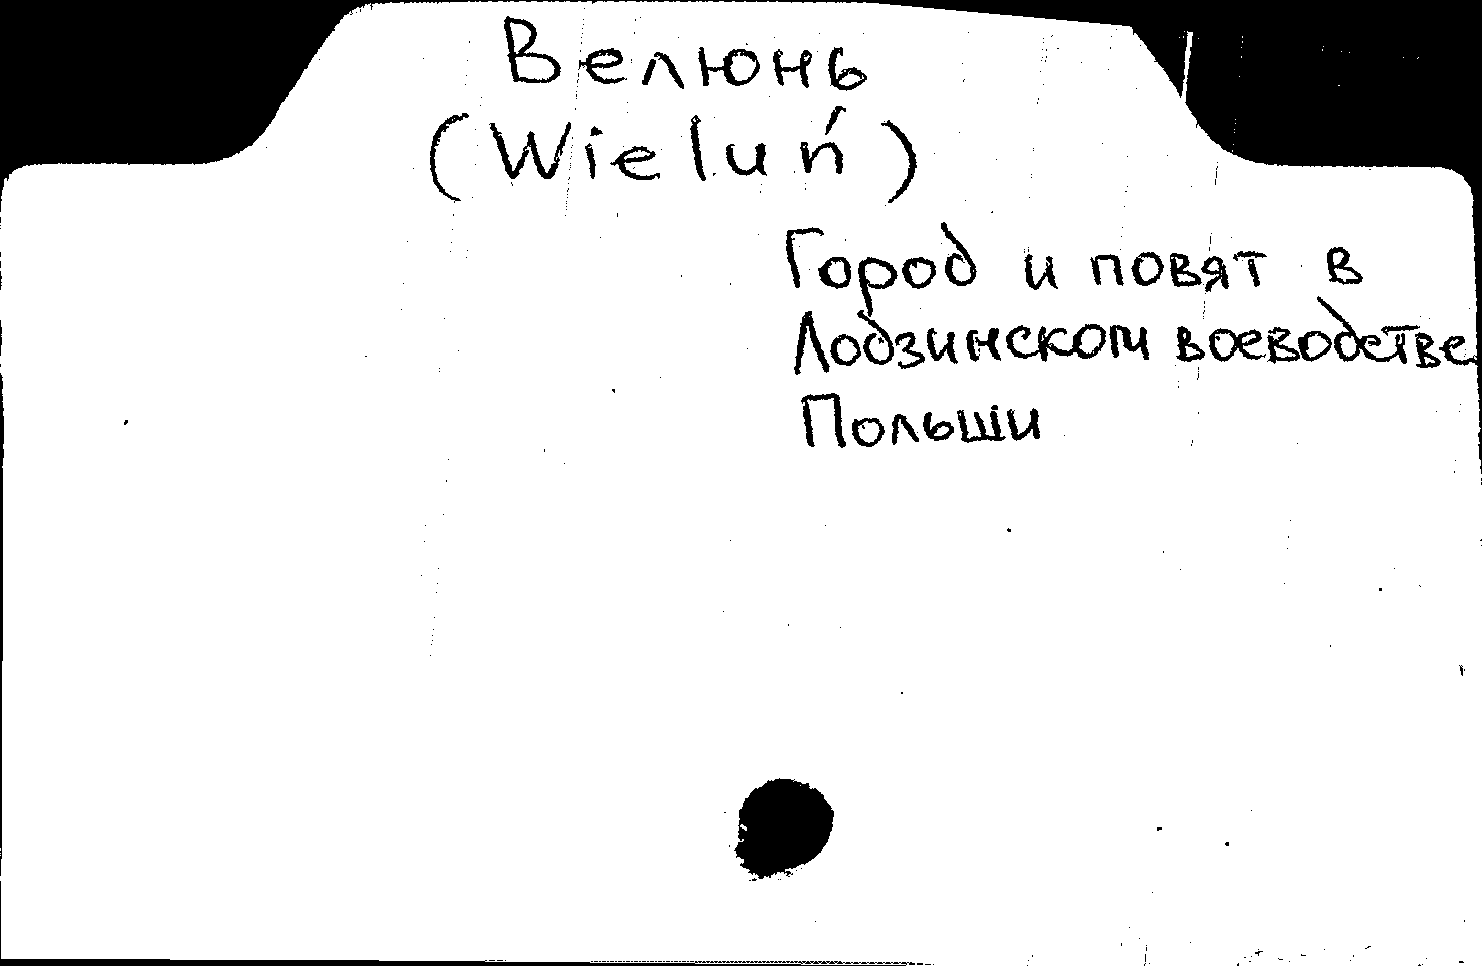 Велюнь
(Wieluń)
Город и повят в
Лодзинском воеводстве
Польши